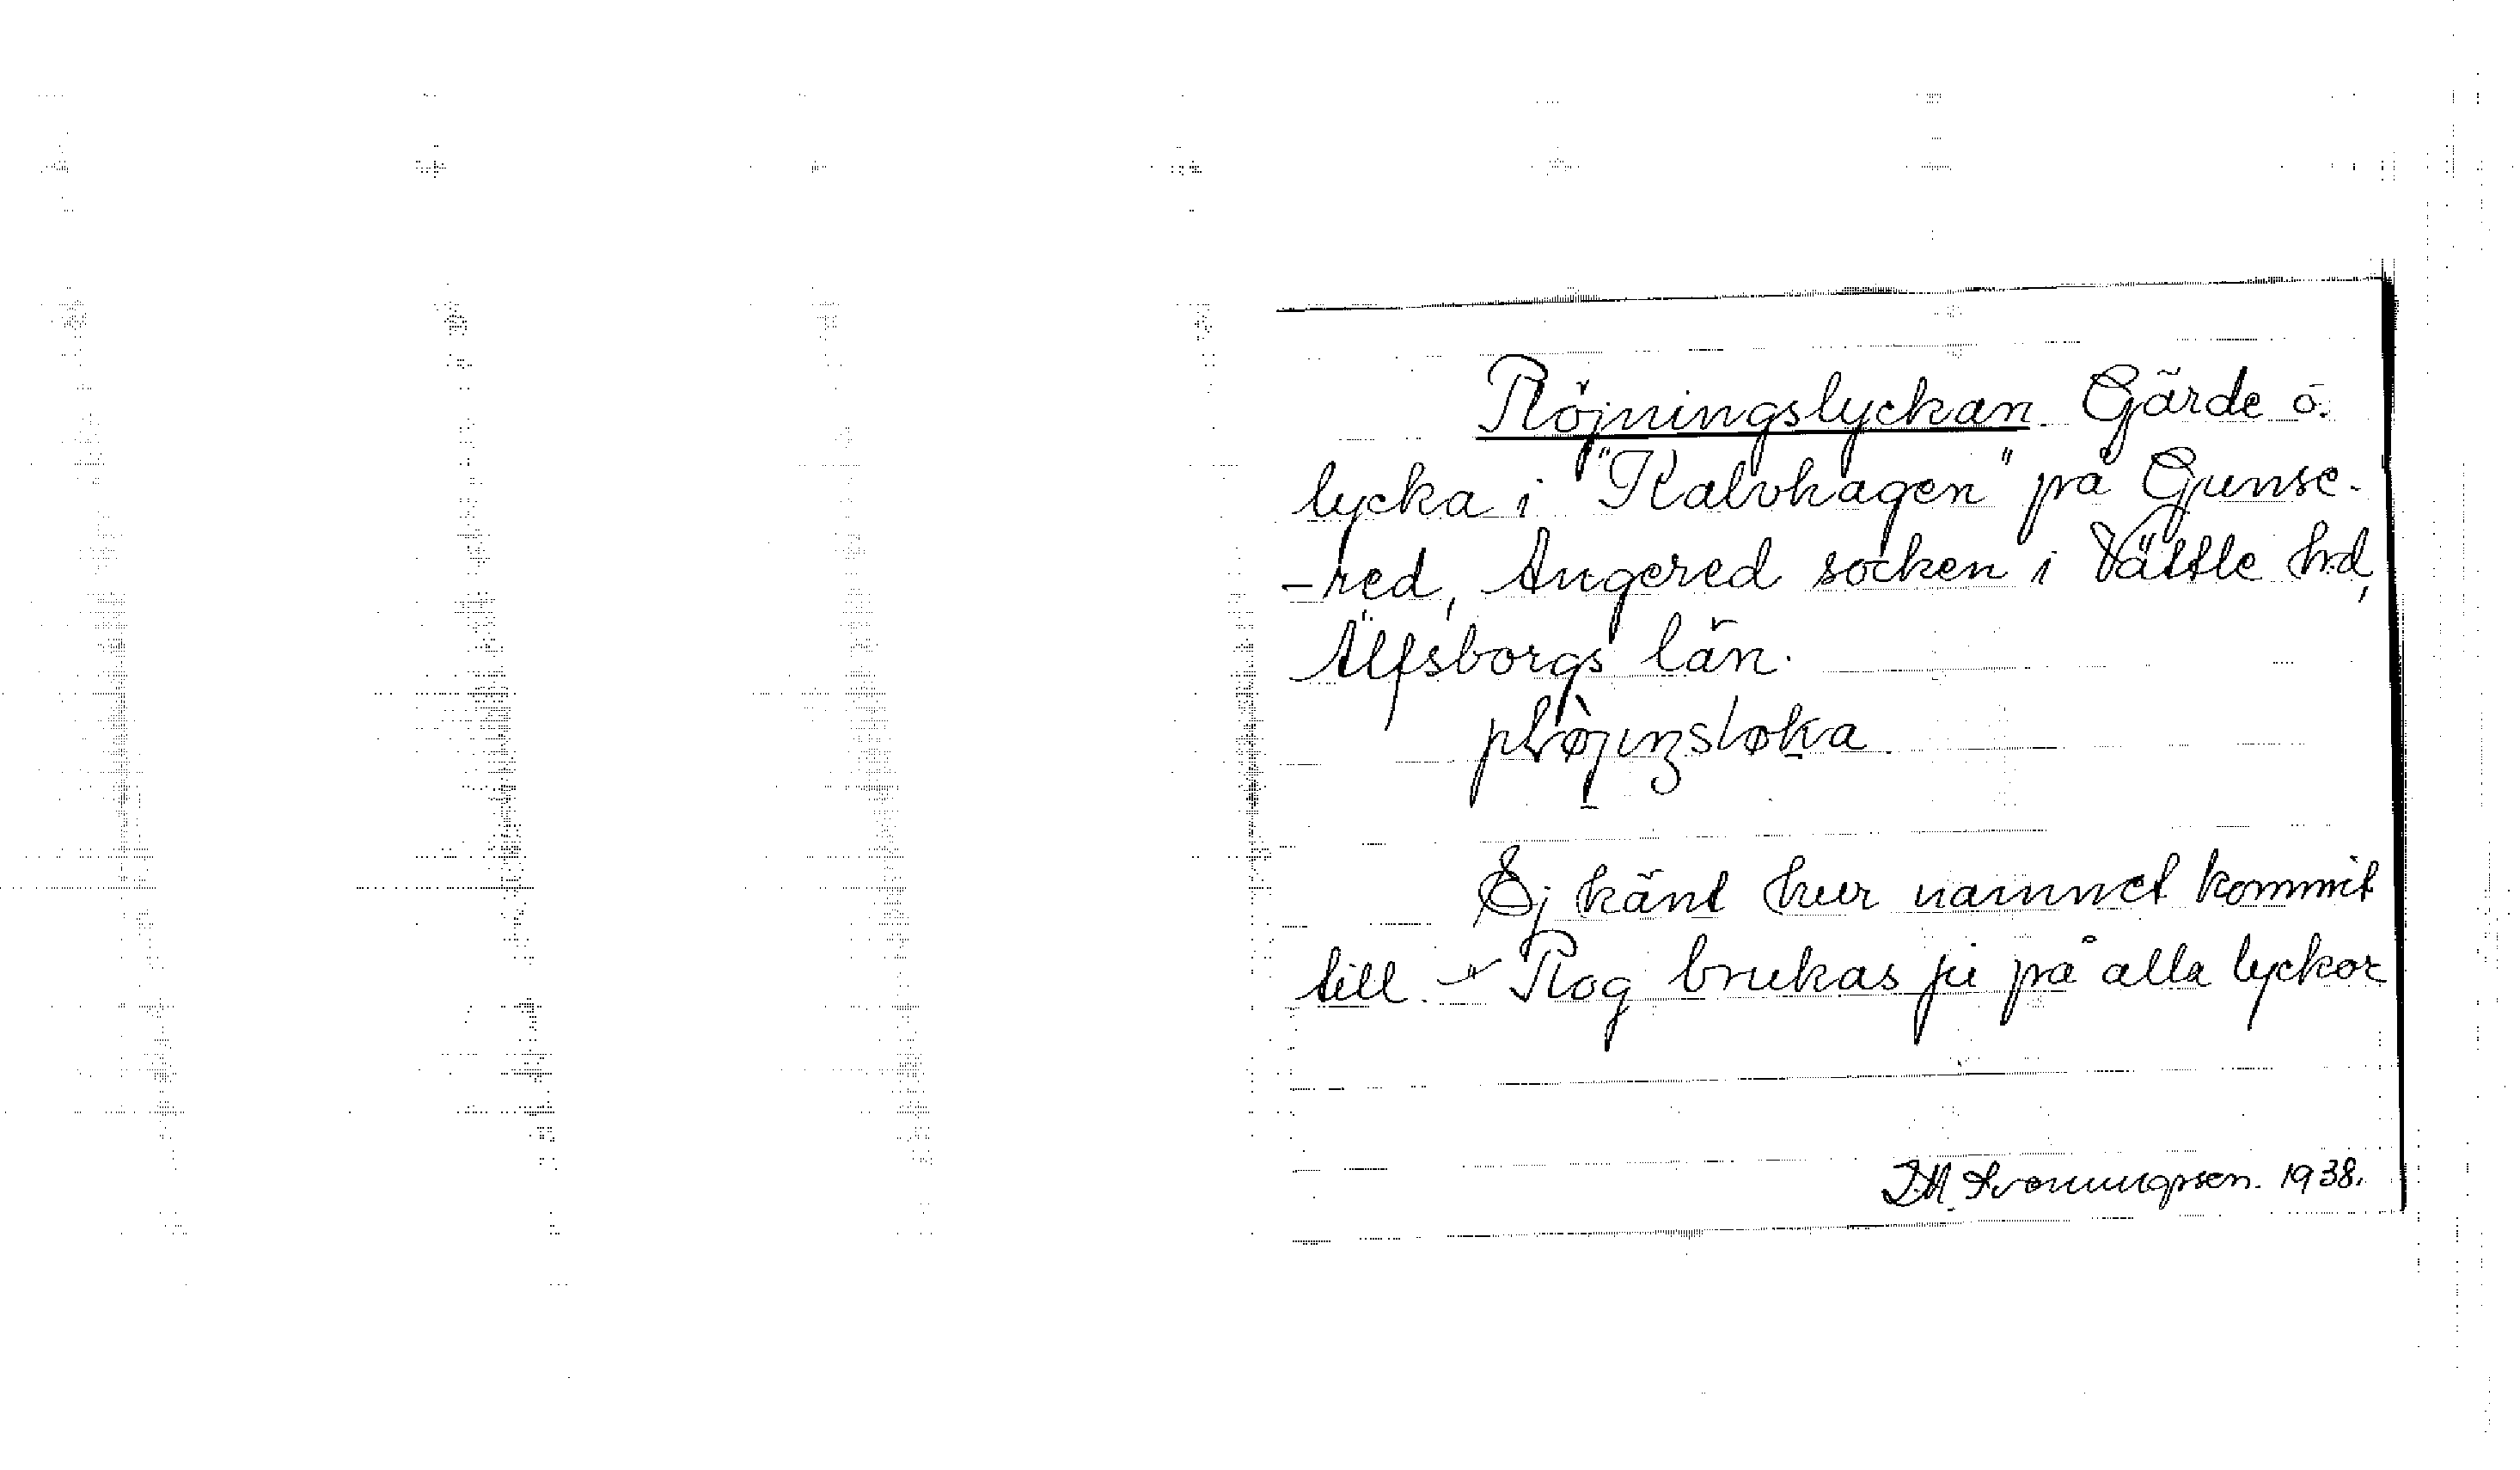 Plöjningslyckan. Gärde o.
lycka i "Kalvhagen" på Gunse-
-red, Angered socken i Vättle hd,
Älfsborgs län.
Ej känt hur namnet kommit
till. - Plog brukas ju på alla lyckor
1938.